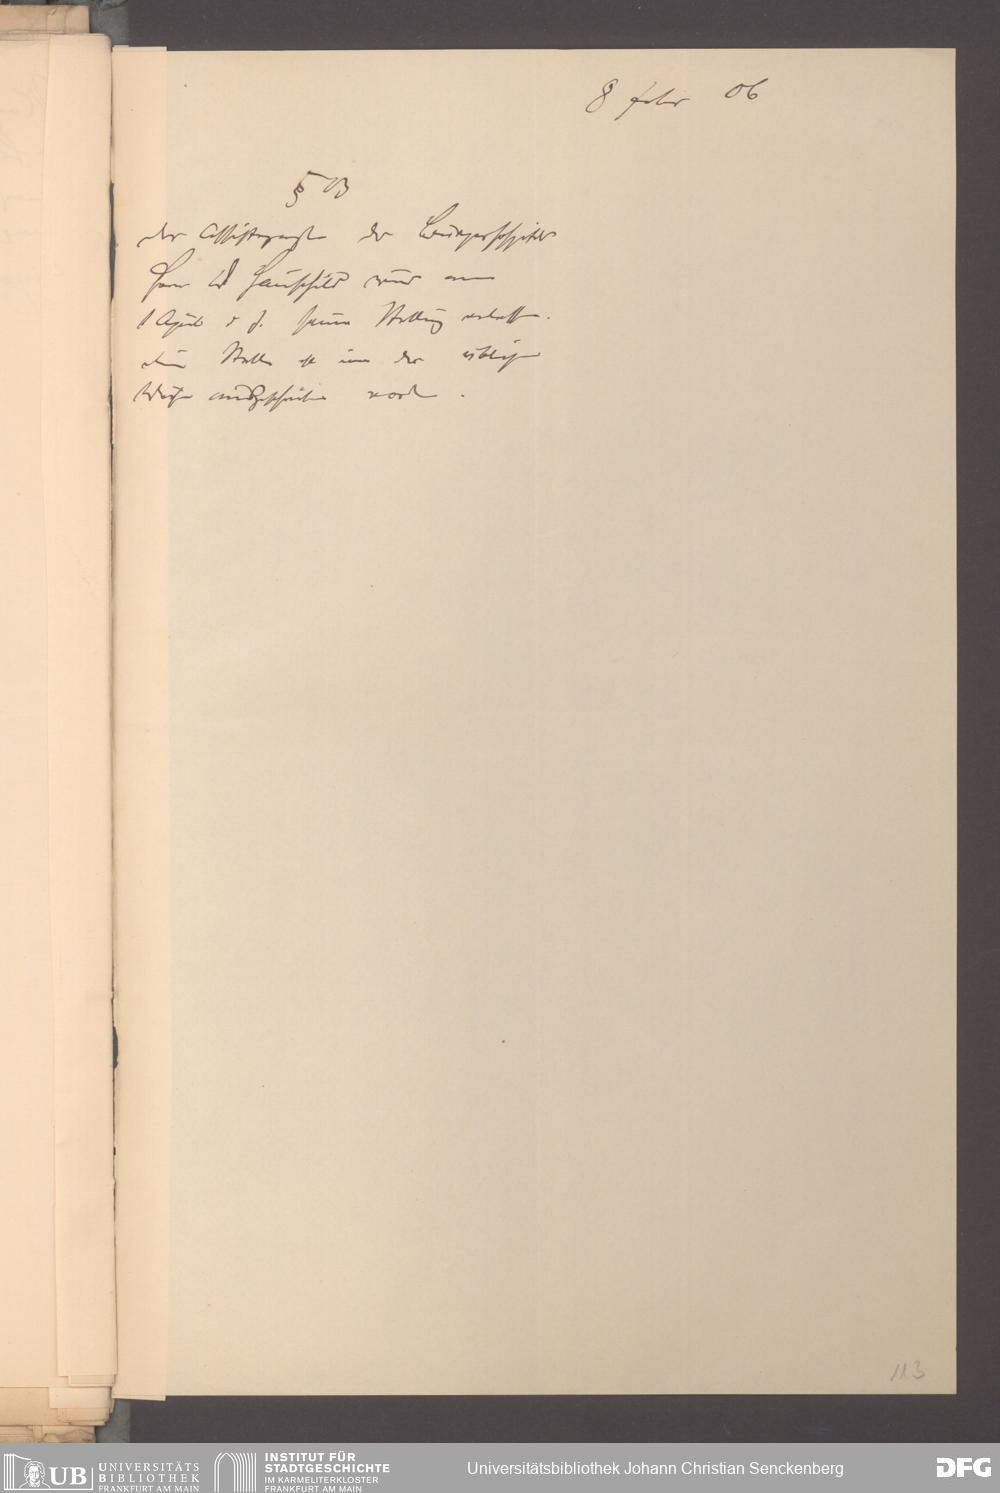 8 Febr 06
§ 13
der Assistenzarzt des Bürgerhospitals
Herr Dr Hauschild wird am
1 April d J. seine Stellung verlassen.
die Stelle ist in der üblichen
Weise ausgeschrieben word.
113
UB UNIVERSITÄTS
BIBLIOTHEK
FRANKFURT AM MAIN
INSTITUT FÜR
STADTGESCHICHTE
IM KARMELITERKLOSTER
FRANKFURT AM MAIN
Universitätsbibliothek Johann Christian Senckenberg
DFG